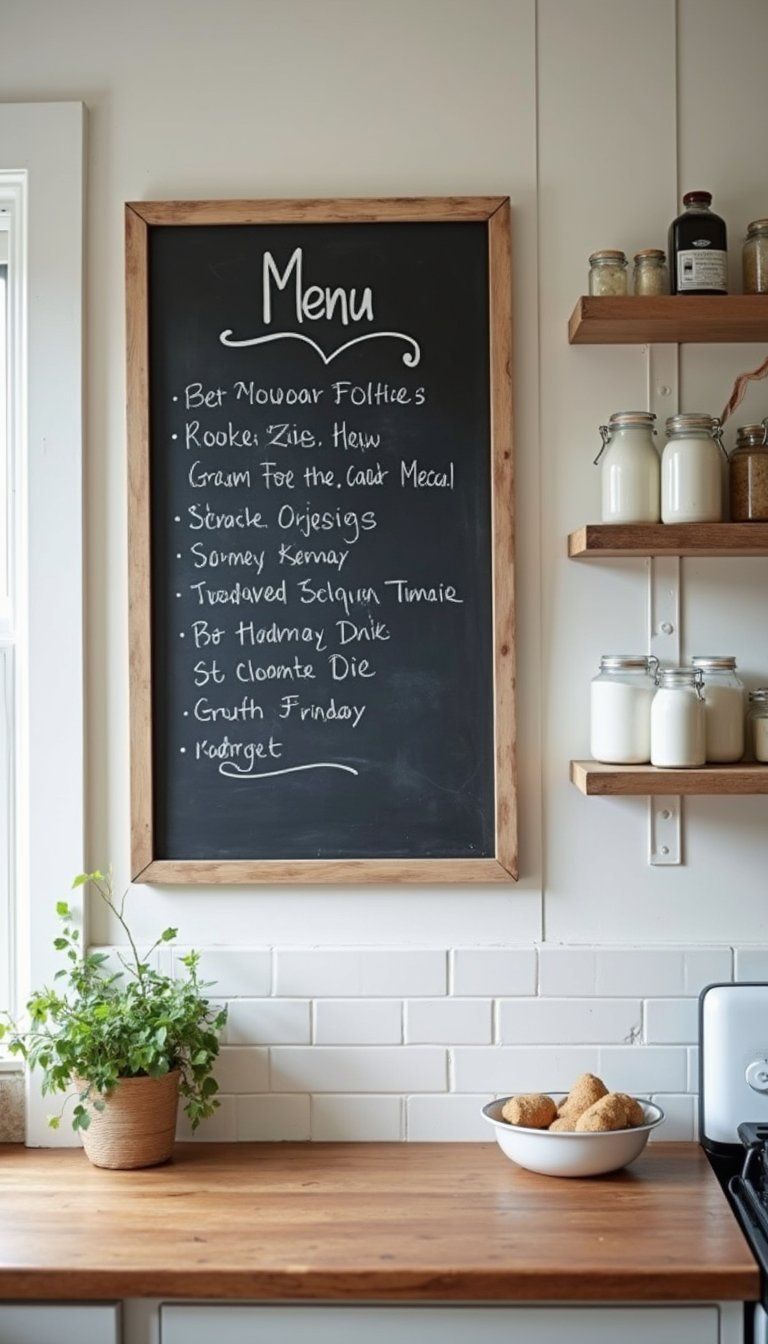 Menu
• Bet Mowoar Folties
• Rooke: Ziis. Hew
Graum Foe the. Caar Mecal
• Scracle Orjesigs
• Sormey Kemay
• Twedaved Selqiyn Timaie
• Bo Hadmay Dnik
St Cloomte Die
• Gruth Frinday